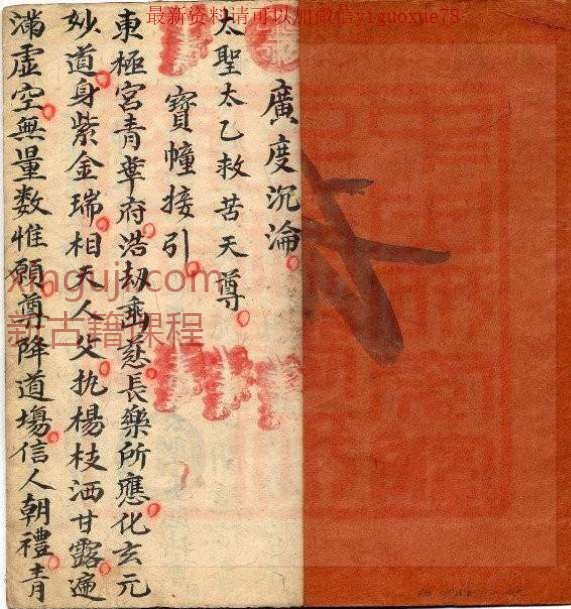 最新资料请可以加微信yiguoxue78
廣度沉淪
太聖太乙救苦天尊
寶幢接引
東極宮青華府浩劫垂慈長樂所應化玄元
妙道身紫金瑞相天人父执楊枝洒甘露遍
滿虛空無量数惟願尊降道場信人朝禮青
xinguji.com
新古籍课程